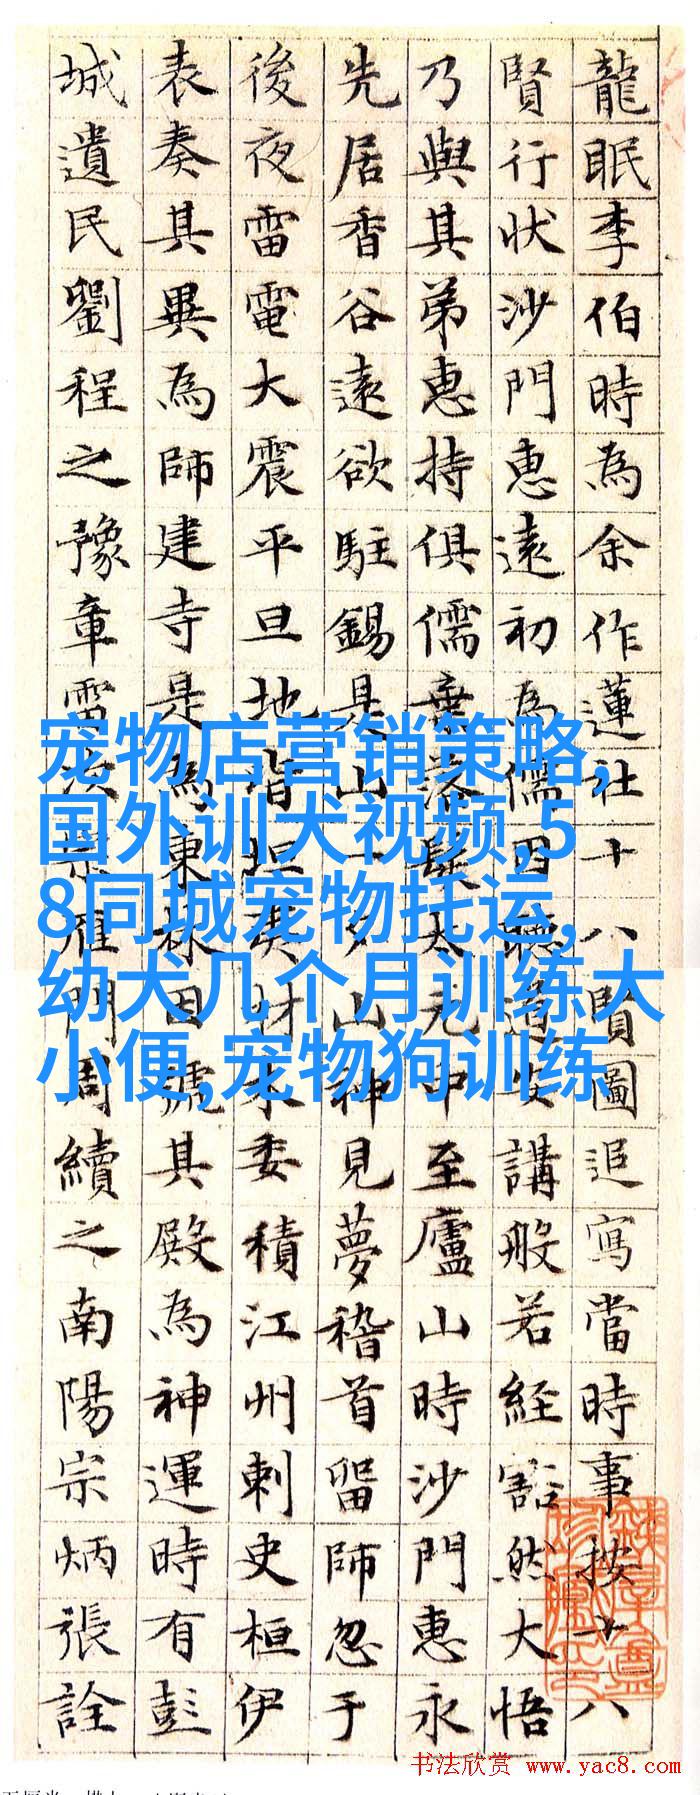 龍眠李伯時為余作蓮社十八賢圖追寫當時事按十八
賢行狀沙門惠遠初為儒因聽道安講般若經豁然大悟
乃與其弟惠持俱儒棄落髮太元中至廬山時沙門惠永
先居香谷遠欲駐錫是山一夕山神見夢稽首留師忽于
後夜雷電大震平旦地皆坦夷材木委積江州刺史桓伊
表奏其異為師建寺是為東林因號其殿為神運時有彭
城遺民劉程之豫章雷次宗雁門周續之南陽宗炳張詮
宠物店营销策略,
国外训犬视频,5
8同城宠物托运,
幼犬几个月训练大
小便,宠物狗训练
书法欣赏 www.yac8.com